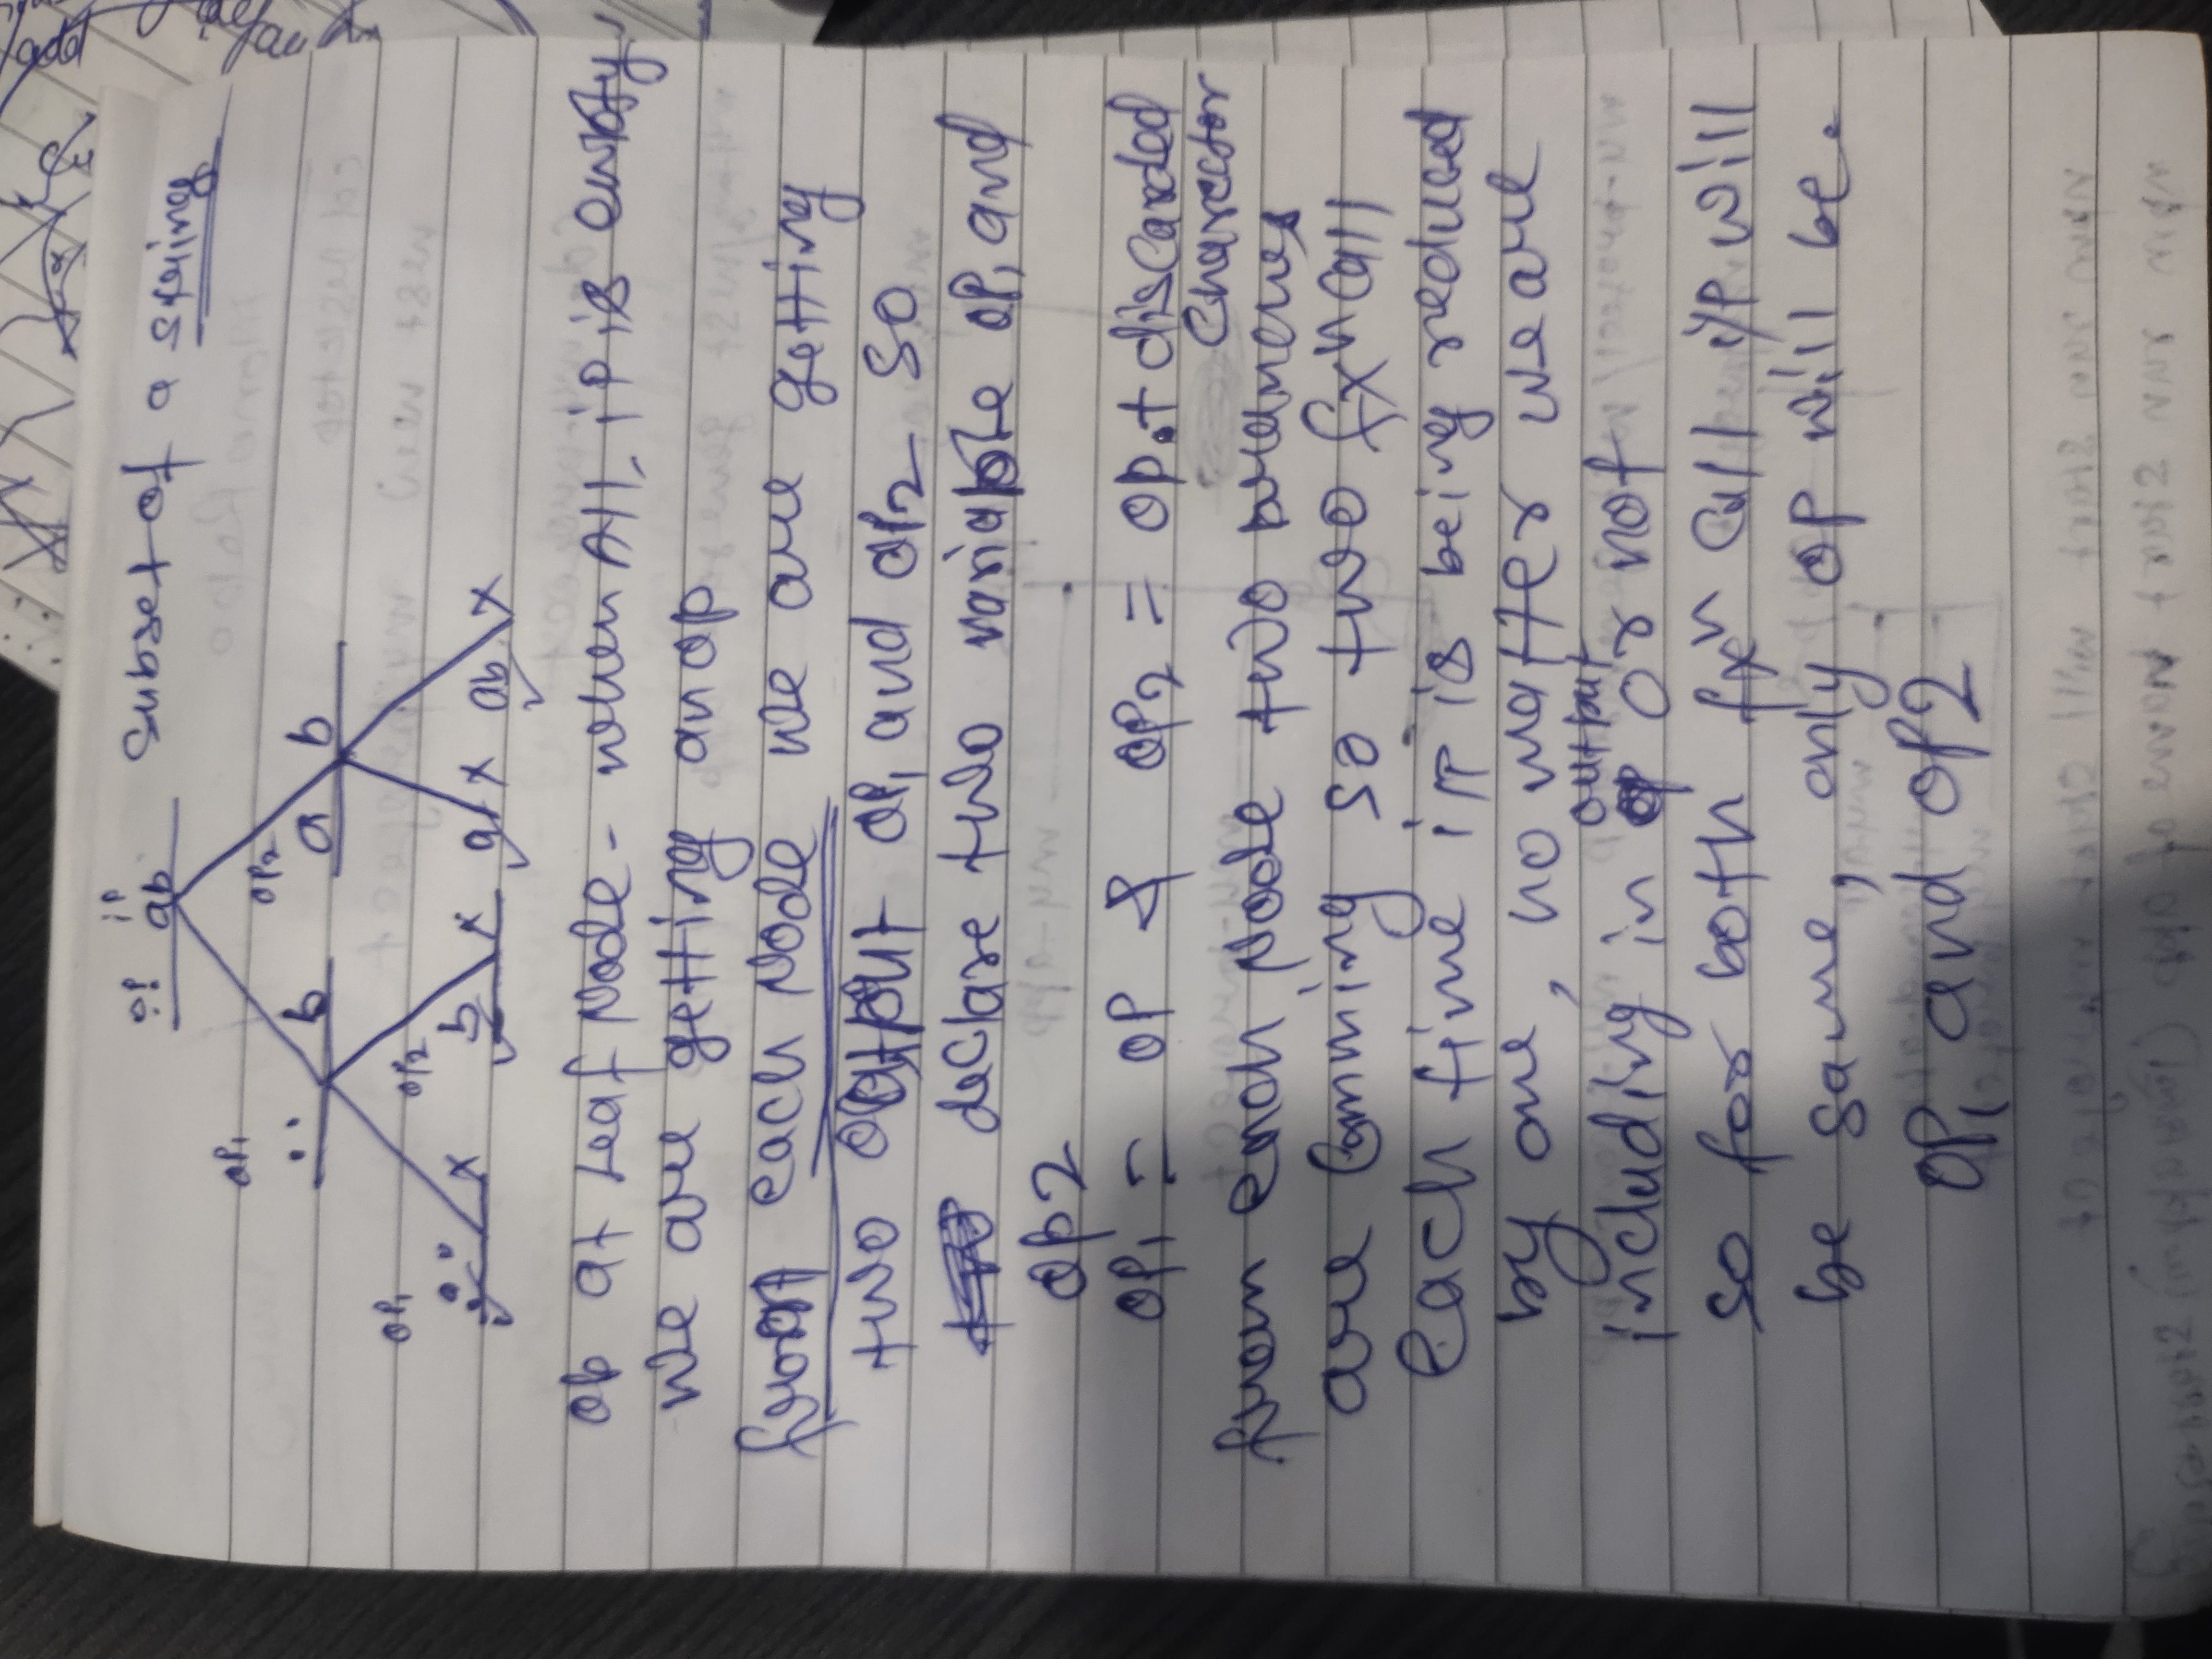 ip
op ab subset of a string
" "
op1 op2
" " b a b
op1 op2
" " x b x a x ab x
op at Leaf Node - when All ip is empty,
we are getting an op
from each Node we are getting
two output op1 and op2 so
declare two variable op1 and
op2
op1 = op & op2 = op + discarded
Charector
from each Node two branches
are Comming so two fxn Call
Each time ip is being reduced
by one, no matter we are
output
including in op or not
so for both fxn Call i/p will
be same, only op will be.
OP1 and OP2